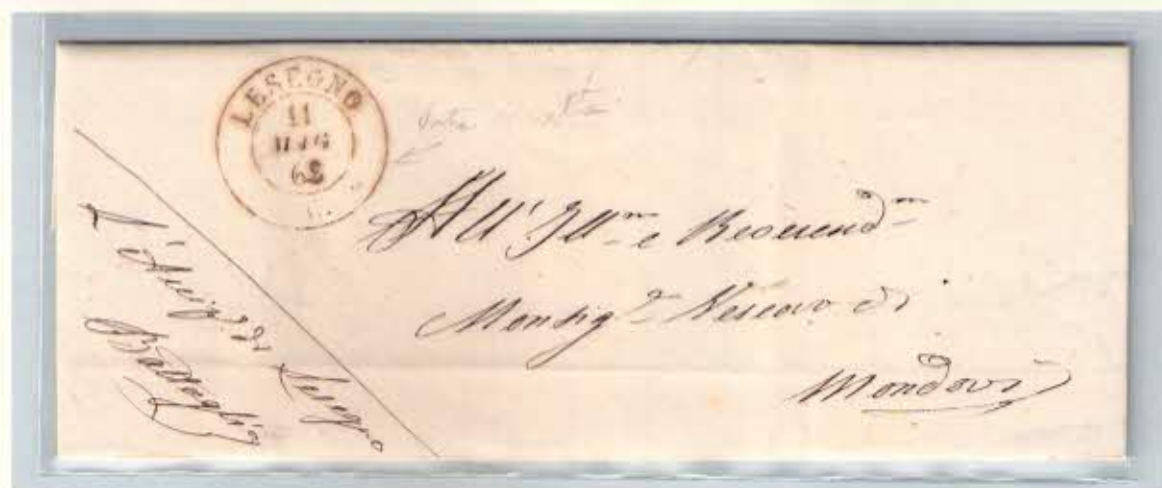 LESEGNO
11
MAG
62
All' Illm e Reverendm
Monsigr Vescovo di
Mondovì
L'Arcipe di Lesegno
Batteglia